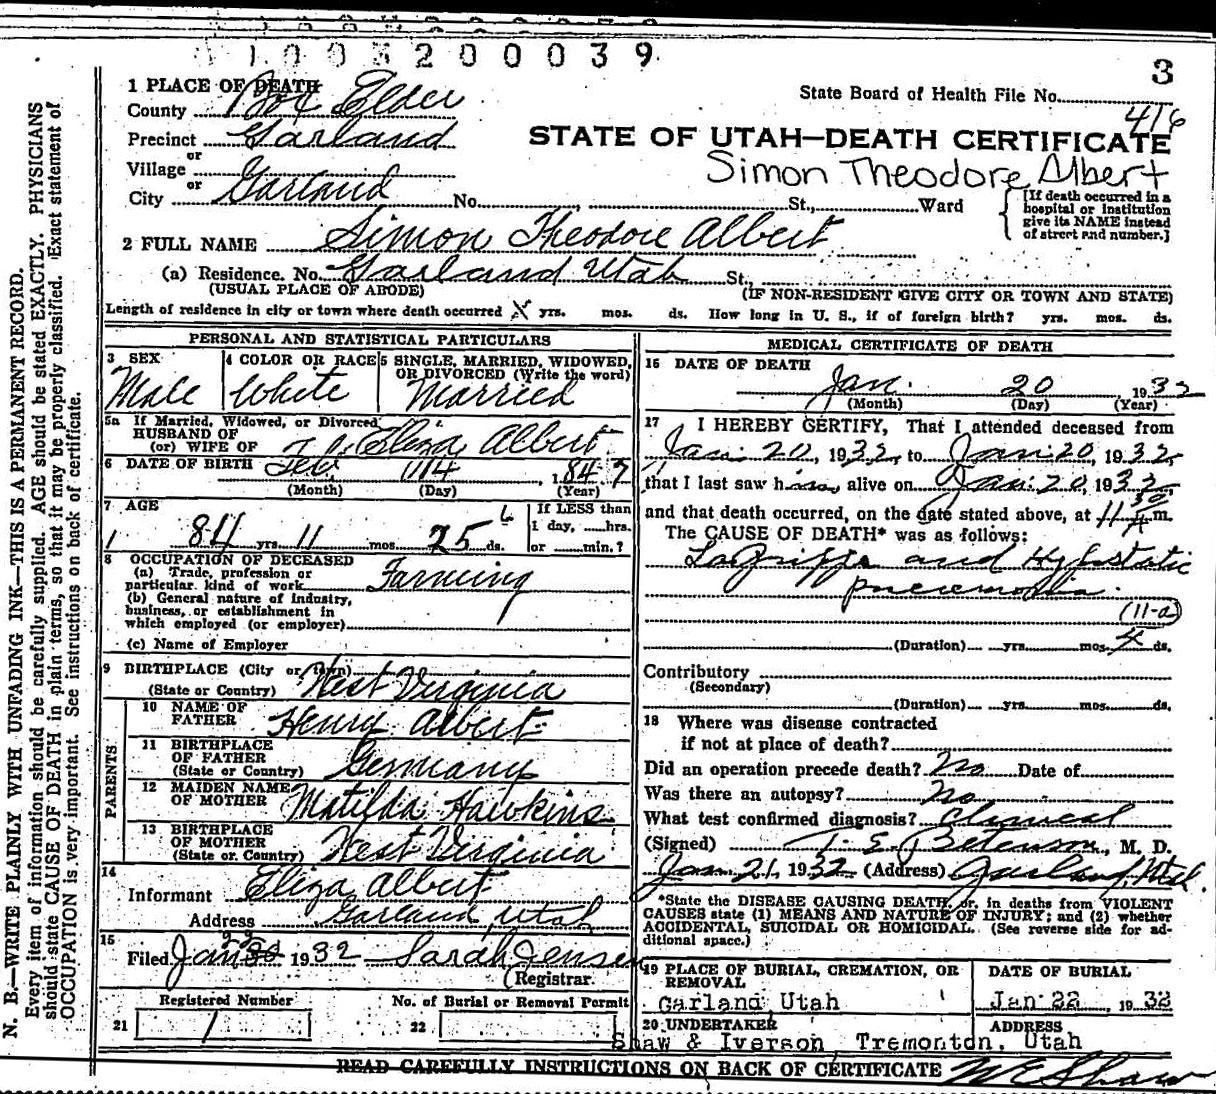 1003200039
3
1 PLACE OF DEATH
County Box Elder
State Board of Health File No.
416
Precinct Garland
or
Village
or
City Garland No. St., Ward
STATE OF UTAH—DEATH CERTIFICATE
Simon Theodore Albert
[If death occurred in a hospital or institution give its NAME instead of street and number.]
2 FULL NAME Simon Theodore Albert
(a) Residence. No. Garland Utah St.,
(USUAL PLACE OF ABODE) (IF NON-RESIDENT GIVE CITY OR TOWN AND STATE)
Length of residence in city or town where death occurred X yrs. mos. ds. How long in U. S., if of foreign birth? yrs. mos. ds.
PERSONAL AND STATISTICAL PARTICULARS
3 SEX
Male
4 COLOR OR RACE
White
5 SINGLE, MARRIED, WIDOWED,
OR DIVORCED (Write the word)
Married
5a If Married, Widowed, or Divorced
HUSBAND OF
(or) WIFE OF Eliza Albert
6 DATE OF BIRTH Feb. 184 7
(Month) (Day) (Year)
7 AGE
84 yrs. 11 mos. 25 ds.
6
If LESS than
1 day, hrs.
or min.?
8 OCCUPATION OF DECEASED
(a) Trade, profession or
particular kind of work Farming
(b) General nature of industry,
business, or establishment in
which employed (or employer)
(c) Name of Employer
9 BIRTHPLACE (City or town)
(State or Country) West Virginia
PARENTS
10 NAME OF
FATHER Henry Albert
11 BIRTHPLACE
OF FATHER
(State or Country) Germany
12 MAIDEN NAME
OF MOTHER Matilda Hawkins
13 BIRTHPLACE
OF MOTHER
(State or Country) West Virginia
14
Informant Eliza Albert
Address Garland, Utah
15
Filed Jan 22 1932 Sarah Jensen
(Registrar.
Registered Number
21 1
No. of Burial or Removal Permit
22
MEDICAL CERTIFICATE OF DEATH
16 DATE OF DEATH
Jan. 20 1932
(Month) (Day) (Year)
17 I HEREBY CERTIFY, That I attended deceased from
Jan. 20, 1932, to Jan. 20, 1932,
that I last saw him alive on Jan. 20, 1932,
and that death occurred, on the date stated above, at 11 30 m.
The CAUSE OF DEATH* was as follows:
LaGrippe and Hypostatic
pneumonia.
(11-a)
(Duration) yrs. mos. 4 ds.
Contributory
(Secondary)
(Duration) yrs. mos. ds.
18 Where was disease contracted
if not at place of death?
Did an operation precede death? No Date of
Was there an autopsy? No
What test confirmed diagnosis? Clinical
(Signed) T. S. Betenson, M. D.
Jan 21, 1932 (Address) Garland, Utah.
*State the DISEASE CAUSING DEATH, or, in deaths from VIOLENT
CAUSES state (1) MEANS AND NATURE OF INJURY; and (2) whether
ACCIDENTAL, SUICIDAL OR HOMICIDAL. (See reverse side for ad-
ditional space.)
19 PLACE OF BURIAL, CREMATION, OR
REMOVAL
Garland, Utah
DATE OF BURIAL
Jan 22, 1932
20 UNDERTAKER
Shaw & Iverson
ADDRESS
Tremonton, Utah
READ CAREFULLY INSTRUCTIONS ON BACK OF CERTIFICATE W E Shaw
N. B.—WRITE PLAINLY WITH UNFADING INK—THIS IS A PERMANENT RECORD.
Every item of information should be carefully supplied. AGE should be stated EXACTLY. PHYSICIANS
should state CAUSE OF DEATH in plain terms, so that it may be properly classified. Exact statement of
OCCUPATION is very important. See instructions on back of certificate.